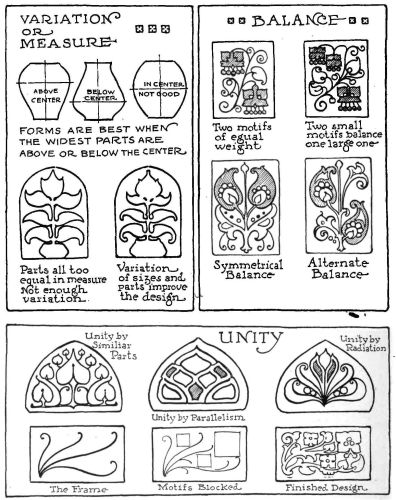 VARIATION
OR
MEASURE
ABOVE
CENTER
BELOW
CENTER
IN CENTER
NOT GOOD
FORMS ARE BEST WHEN
THE WIDEST PARTS ARE
ABOVE OR BELOW THE CENTER
Parts all too
equal in measure
Not enough
variation.
Variation
of sizes and
parts improve
the design
BALANCE
Two motifs
of equal
weight
Two small
motifs balance
one large one
Symmetrical
Balance
Alternate
Balance
UNITY
Unity by
Similiar
Parts
Unity by Parallelism
Unity by
Radiation
The Frame
Motifs Blocked
Finished Design